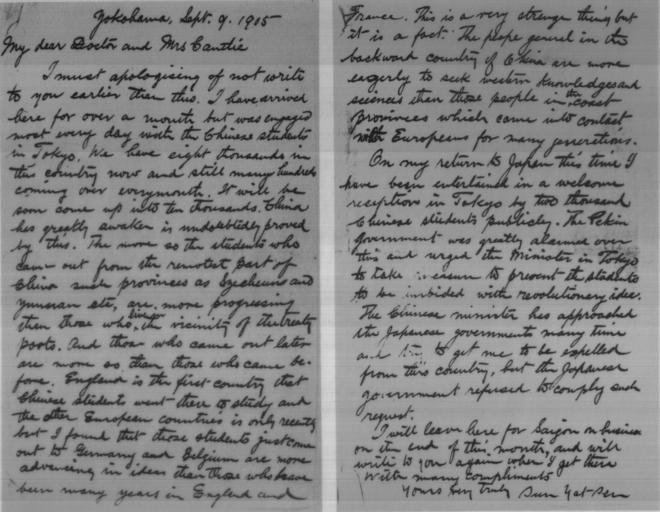 Yokohama, Sept. 9. 1905
My dear Doctor and Mrs Cantlie
I must apologising of not write
to you earlier than this. I have arrived
here for over a month but was engaged
most every day with the Chinese students
in Tokyo. We have eight thousands in
this country now and still many hundreds
coming over everymonth. It will be
soon come up into ten thousands. China
has greatly awaken is undoubtedly proved
by this. The more so the students who
came out from the remotest part of
China such provinces as Szechuen and
yunnan etc, are more progressing
then those who live in the vicinity of the treaty
ports. And those who came out later
are more so than those who came be-
fore. England is the first country that
Chinese students went there to study and
the other European countries is only recently
but I found that those students just come
out to Germany and Belgium are more
advancing in ideas than those who have
been many years in England and
France. This is a very strange thing but
it is a fact. The people generel in the
backward country of China are more
eagerly to seek western knowledge and
sciences then those people in the coast
provinces which came into contact
with Europeans for many generations.
On my return to Japan this time I
have been entertained in a welcome
reception in Tokyo by two thousand
Chinese students publicly. The Pekin
government was greatly alarmed over
this and urged the Minister in Tokyo
to take measure to prevent the students
to be imbided with revolutionary idea.
The Chinese minister has approached
the Japanese governments many time
and try to get me to be expelled
from this country, but the Japanese
government refused to comply such
request.
I will leave here for Saigon on business
on the end of this month, and will
write to you again when I get there
With many compliments
Yours very truly Sun Yat Sen